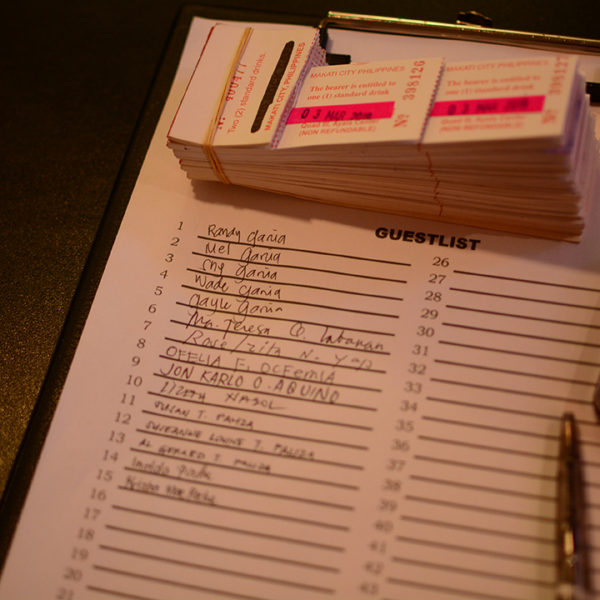 Nº 400477
Two (2) standard drinks.
MAKATI CITY, PHILIPPINES
MAKATI CITY PHILIPPINES
The bearer is entitled to
one (1) standard drink
03 MAR
Quad III, Ayala Center
(NON REFUNDABLE)
Nº 398126
MAKATI CITY PHILIPPINES
The bearer is entitled to
one (1) standard drink
03 MAR
Quad III, Ayala Center
(NON REFUNDABLE)
Nº
GUESTLIST
1 Randy Garcia
2 Mel Garcia
3 Garcia
4 Wade Garcia
5 Gayle Garcia
6 Ma. Teresa Q.
7 Rose/Zita N. Yap
8 OFELIA F. OCFEMIA
9 JON KARLO O. AQUINO
10 LIZETH
11 SUSAN T. PALIZA
12 SUZEANNE LOUISE T. PALIZA
13 AL GERARD T. PALIZA
14 Imelda
15
16
17
18
19
20
21
26
27
28
29
30
31
32
33
34
35
36
37
38
39
40
41
42
43